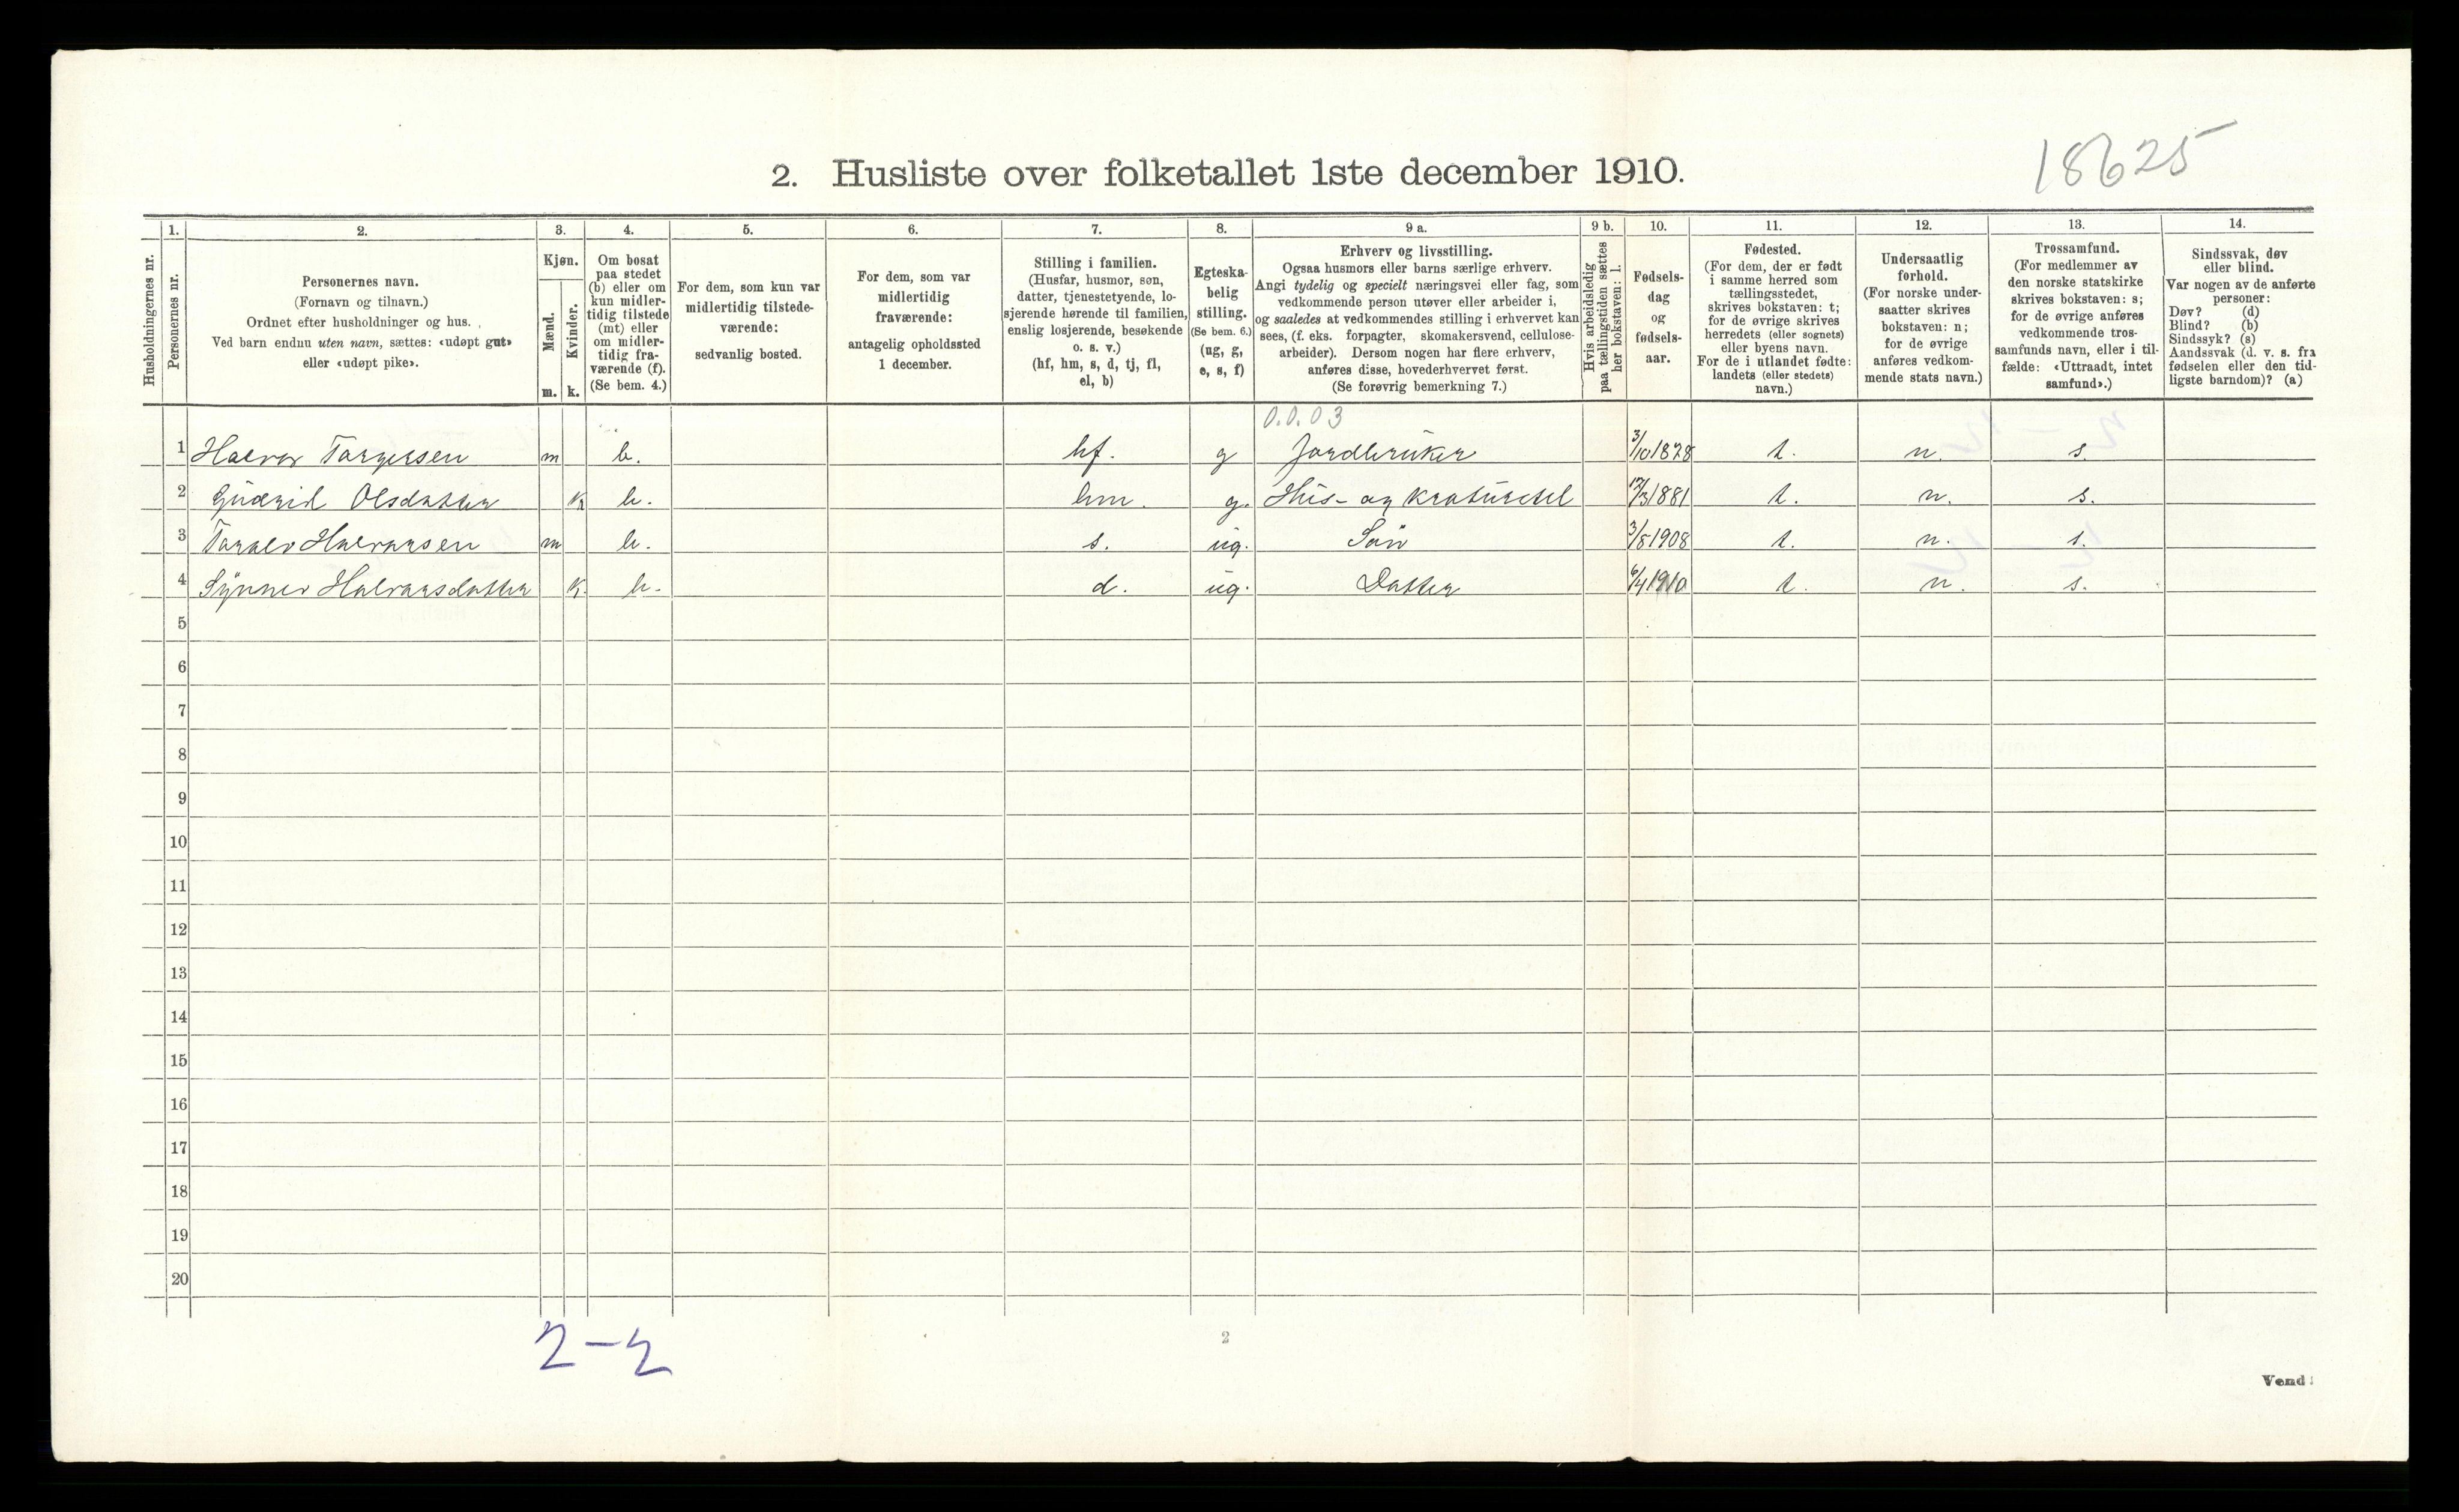 18625
2. Husliste over folketallet 1ste december 1910.
Husholdningernes nr.
1.
Personernes nr.
2.
Personernes navn.
(Fornavn og tilnavn.)
Ordnet efter husholdninger og hus.
Ved barn endnu uten navn, sættes: «udøpt gut»
eller «udøpt pike».
3.
Kjøn.
Mænd.
m.
Kvinder.
k.
4.
Om bosat
paa stedet
(b) eller om
kun midler-
tidig tilstede
(mt) eller
om midler-
tidig fra-
værende (f).
(Se bem. 4.)
5.
For dem, som kun var
midlertidig tilstede-
værende:
sedvanlig bosted.
6.
For dem, som var
midlertidig
fraværende:
antagelig opholdssted
1 december.
7.
Stilling i familien.
(Husfar, husmor, søn,
datter, tjenestetyende, lo-
sjerende hørende til familien,
enslig losjerende, besøkende
o. s. v.)
(hf, hm, s, d, tj, fl,
el, b)
8.
Egteska-
belig
stilling.
(Se bem. 6.)
(ug, g,
e, s, f)
9 a.
Erhverv og livsstilling.
Ogsaa husmors eller barns særlige erhverv.
Angi tydelig og specielt næringsvei eller fag, som
vedkommende person utøver eller arbeider i,
og saaledes at vedkommendes stilling i erhvervet kan
sees, (f. eks. forpagter, skomakersvend, cellulose-
arbeider). Dersom nogen har flere erhverv,
anføres disse, hovederhvervet først.
(Se forøvrig bemerkning 7.)
9 b.
Hvis arbeidsledig
paa tællingstiden sættes
her bokstaven: l.
10.
Fødsels-
dag
og
fødsels-
aar.
11.
Fødested.
(For dem, der er født
i samme herred som
tællingsstedet,
skrives bokstaven: t;
for de øvrige skrives
herredets (eller sognets)
eller byens navn.
For de i utlandet fødte:
landets (eller stedets)
navn.)
12.
Undersaatlig
forhold.
(For norske under-
saatter skrives
bokstaven: n;
for de øvrige
anføres vedkom-
mende stats navn.)
13.
Trossamfund.
(For medlemmer av
den norske statskirke
skrives bokstaven: s;
for de øvrige anføres
vedkommende tros-
samfunds navn, eller i til-
fælde: «Uttraadt, intet
samfund».)
14.
Sindssvak, døv
eller blind.
Var nogen av de anførte
personer:
Døv? (d)
Blind? (b)
Sindssyk? (s)
Aandssvak (d. v. s. fra
fødselen eller den tid-
ligste barndom)? (a)
0.0.03
1 Halvor Torgersen m b. hf. g Jordbruker 3/10 1878 t. n. s.
2 Gudrid Olsdatter k b. hm. g. Hus- og kreaturstel 12/3 1881 t. n. s.
3 Halvorsen m b. s. ug. Søn 3/8 1908 t. n. s.
4 Synnev Halvorsdatter k. b. d. ug. Datter 6/4 1910 t. n. s.
5
6
7
8
9
10
11
12
13
14
15
16
17
18
19
20
2-2
2
Vend!